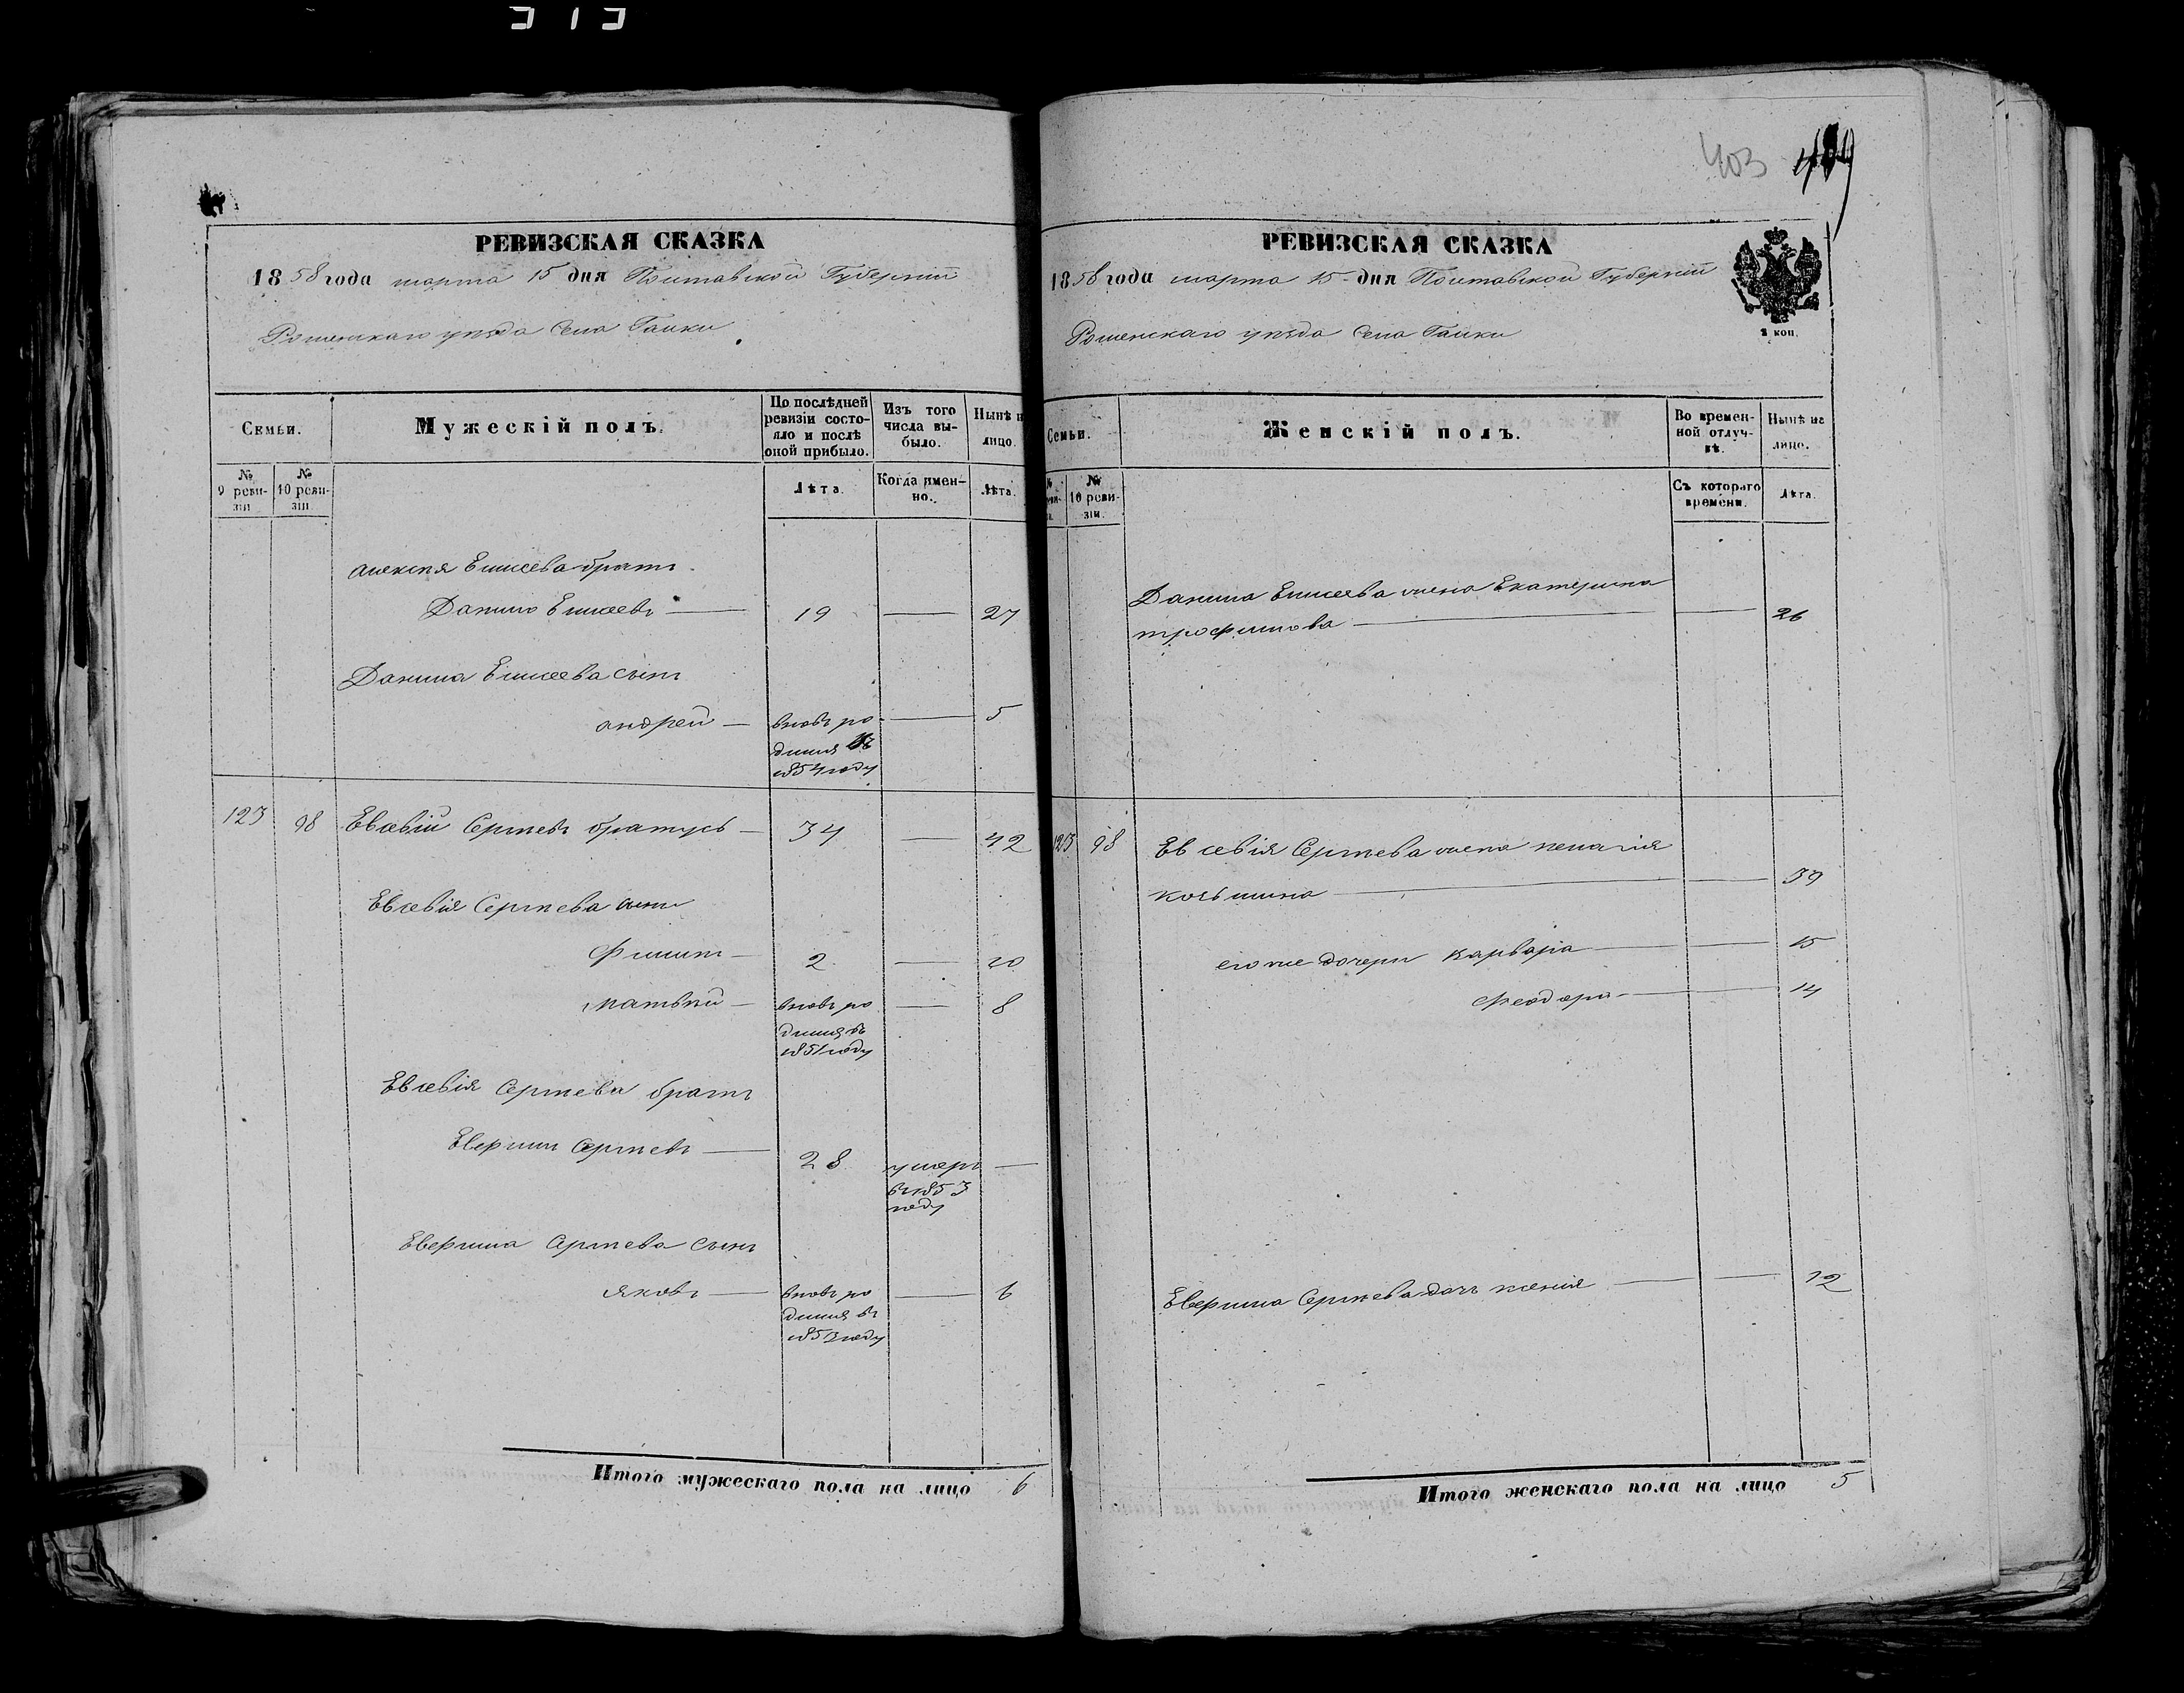 403 409
РЕВИЗСКАЯ СКАЗКА
1858 года марта 15 дня Полтавской Губернии
Роменскаго уѣзда Села Галки
Семьи.
Мужескій полъ.
По послѣдней ревизіи состояло и послѣ оной прибыло.
Изъ того числа выбыло.
Нынѣ на лицо.
№ 9 ревизіи
№ 10 ревизіи
Лѣта.
Когда именно.
Лѣта.
алексѣя Елисеева братъ
Данило Елисеевъ — 19 — 27
Данила Елисеева сынъ
андрей — вновь ро — 5
дился въ
1854 году
123 98 Евсевій Сергѣевъ братусь — 34 — 42
Евсевія Сергѣева сыны
Филипъ — 2 — 10
матвѣй — вновь ро — 8
дился въ
1851 году
Евсевія Сергѣева братъ
Евфимъ Сергѣевъ — 28 умеръ —
въ 1853
году
Евфима Сергѣева сынъ
яковъ — вновь ро — 6
дился въ
1853 году
Итого мужескаго пола на лицо 6
РЕВИЗСКАЯ СКАЗКА
1858 года марта 15 дня Полтавской Губернии
Роменскаго уѣзда Села Галки
2 коп.
Семьи.
Женскій полъ.
Во временной отлучкѣ.
Нынѣ на лицо.
№ 10 ревизіи.
Съ котораго времени.
Лѣта.
Данила Елисеева жена Екатерина
трофимова — — 26
123 98 Евсевія Сергѣева жена пелагія
козьмина — — 39
его же дочери варвара — — 15
феодора — — 14
Евфима Сергѣева дочь ксенія — — 12
Итого женскаго пола на лицо 5